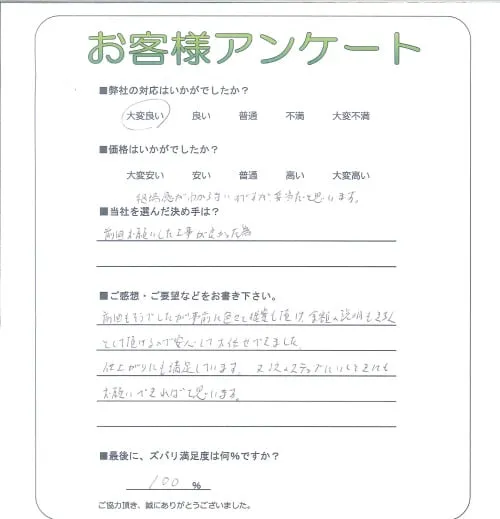 お客様アンケート
■弊社の対応はいかがでしたか?
大変良い 良い 普通 不満 大変不満
■価格はいかがでしたか?
大変安い 安い 普通 高い 大変高い
相場感がわからないですが妥当だと思います。
■当社を選んだ決め手は?
前回お願いした工事が良かった為
■ご感想・ご要望などをお書き下さい。
前回もそうでしたが事前に色々と提案も頂け、金額の説明もきちん
として頂けるので安心してお任せできました。
仕上がりにも満足しています。又次のステップに
お願いできればと思います。
■最後に、ズバリ満足度は何%ですか?
100 %
ご協力頂き、誠にありがとうございました。